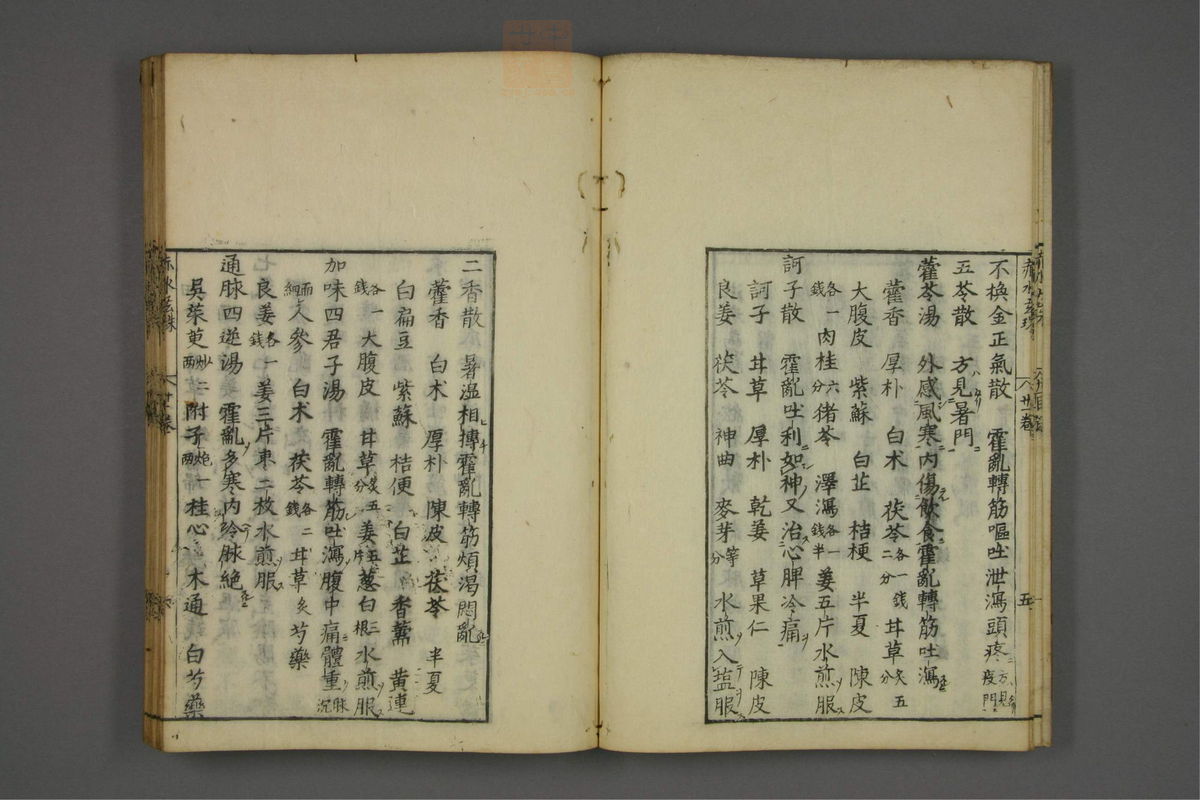 不換金正氣散　霍亂轉筋嘔吐泄瀉頭疼方見疫門
五苓散　方見暑門
藿苓湯　外感風寒內傷飲食霍亂轉筋吐瀉
藿香　厚朴　白朮　茯苓各一錢二分　甘草炙五分
大腹皮　紫蘇　白芷　桔梗　半夏　陳皮
各一錢　肉桂六分　猪苓　澤瀉各一錢半　姜五片水煎服
訶子散　霍亂吐利如神又治心脾冷痛
訶子　甘草　厚朴　乾姜　草果仁　陳皮
良姜　茯苓　神曲　麥芽等分　水煎入塩服
二香散　暑温相搏霍亂轉筋煩渴悶亂
藿香　白朮　厚朴　陳皮　茯苓　半夏
白扁豆　紫蘇　桔便　白芷　香薷　黄連
各一錢　大腹皮　甘草炙五分　姜五片　葱白三根　水煎服
加味四君子湯　霍亂轉筋吐瀉腹中痛體重脉沉
而細　人參　白朮　茯苓各二錢　甘草炙　芍藥
良姜各一錢　姜三片棗二枚水煎服
通脉四逆湯　霍亂多寒內冷脉絶
吳茱萸炒二兩　附子炮一兩　桂心　木通　白芍藥